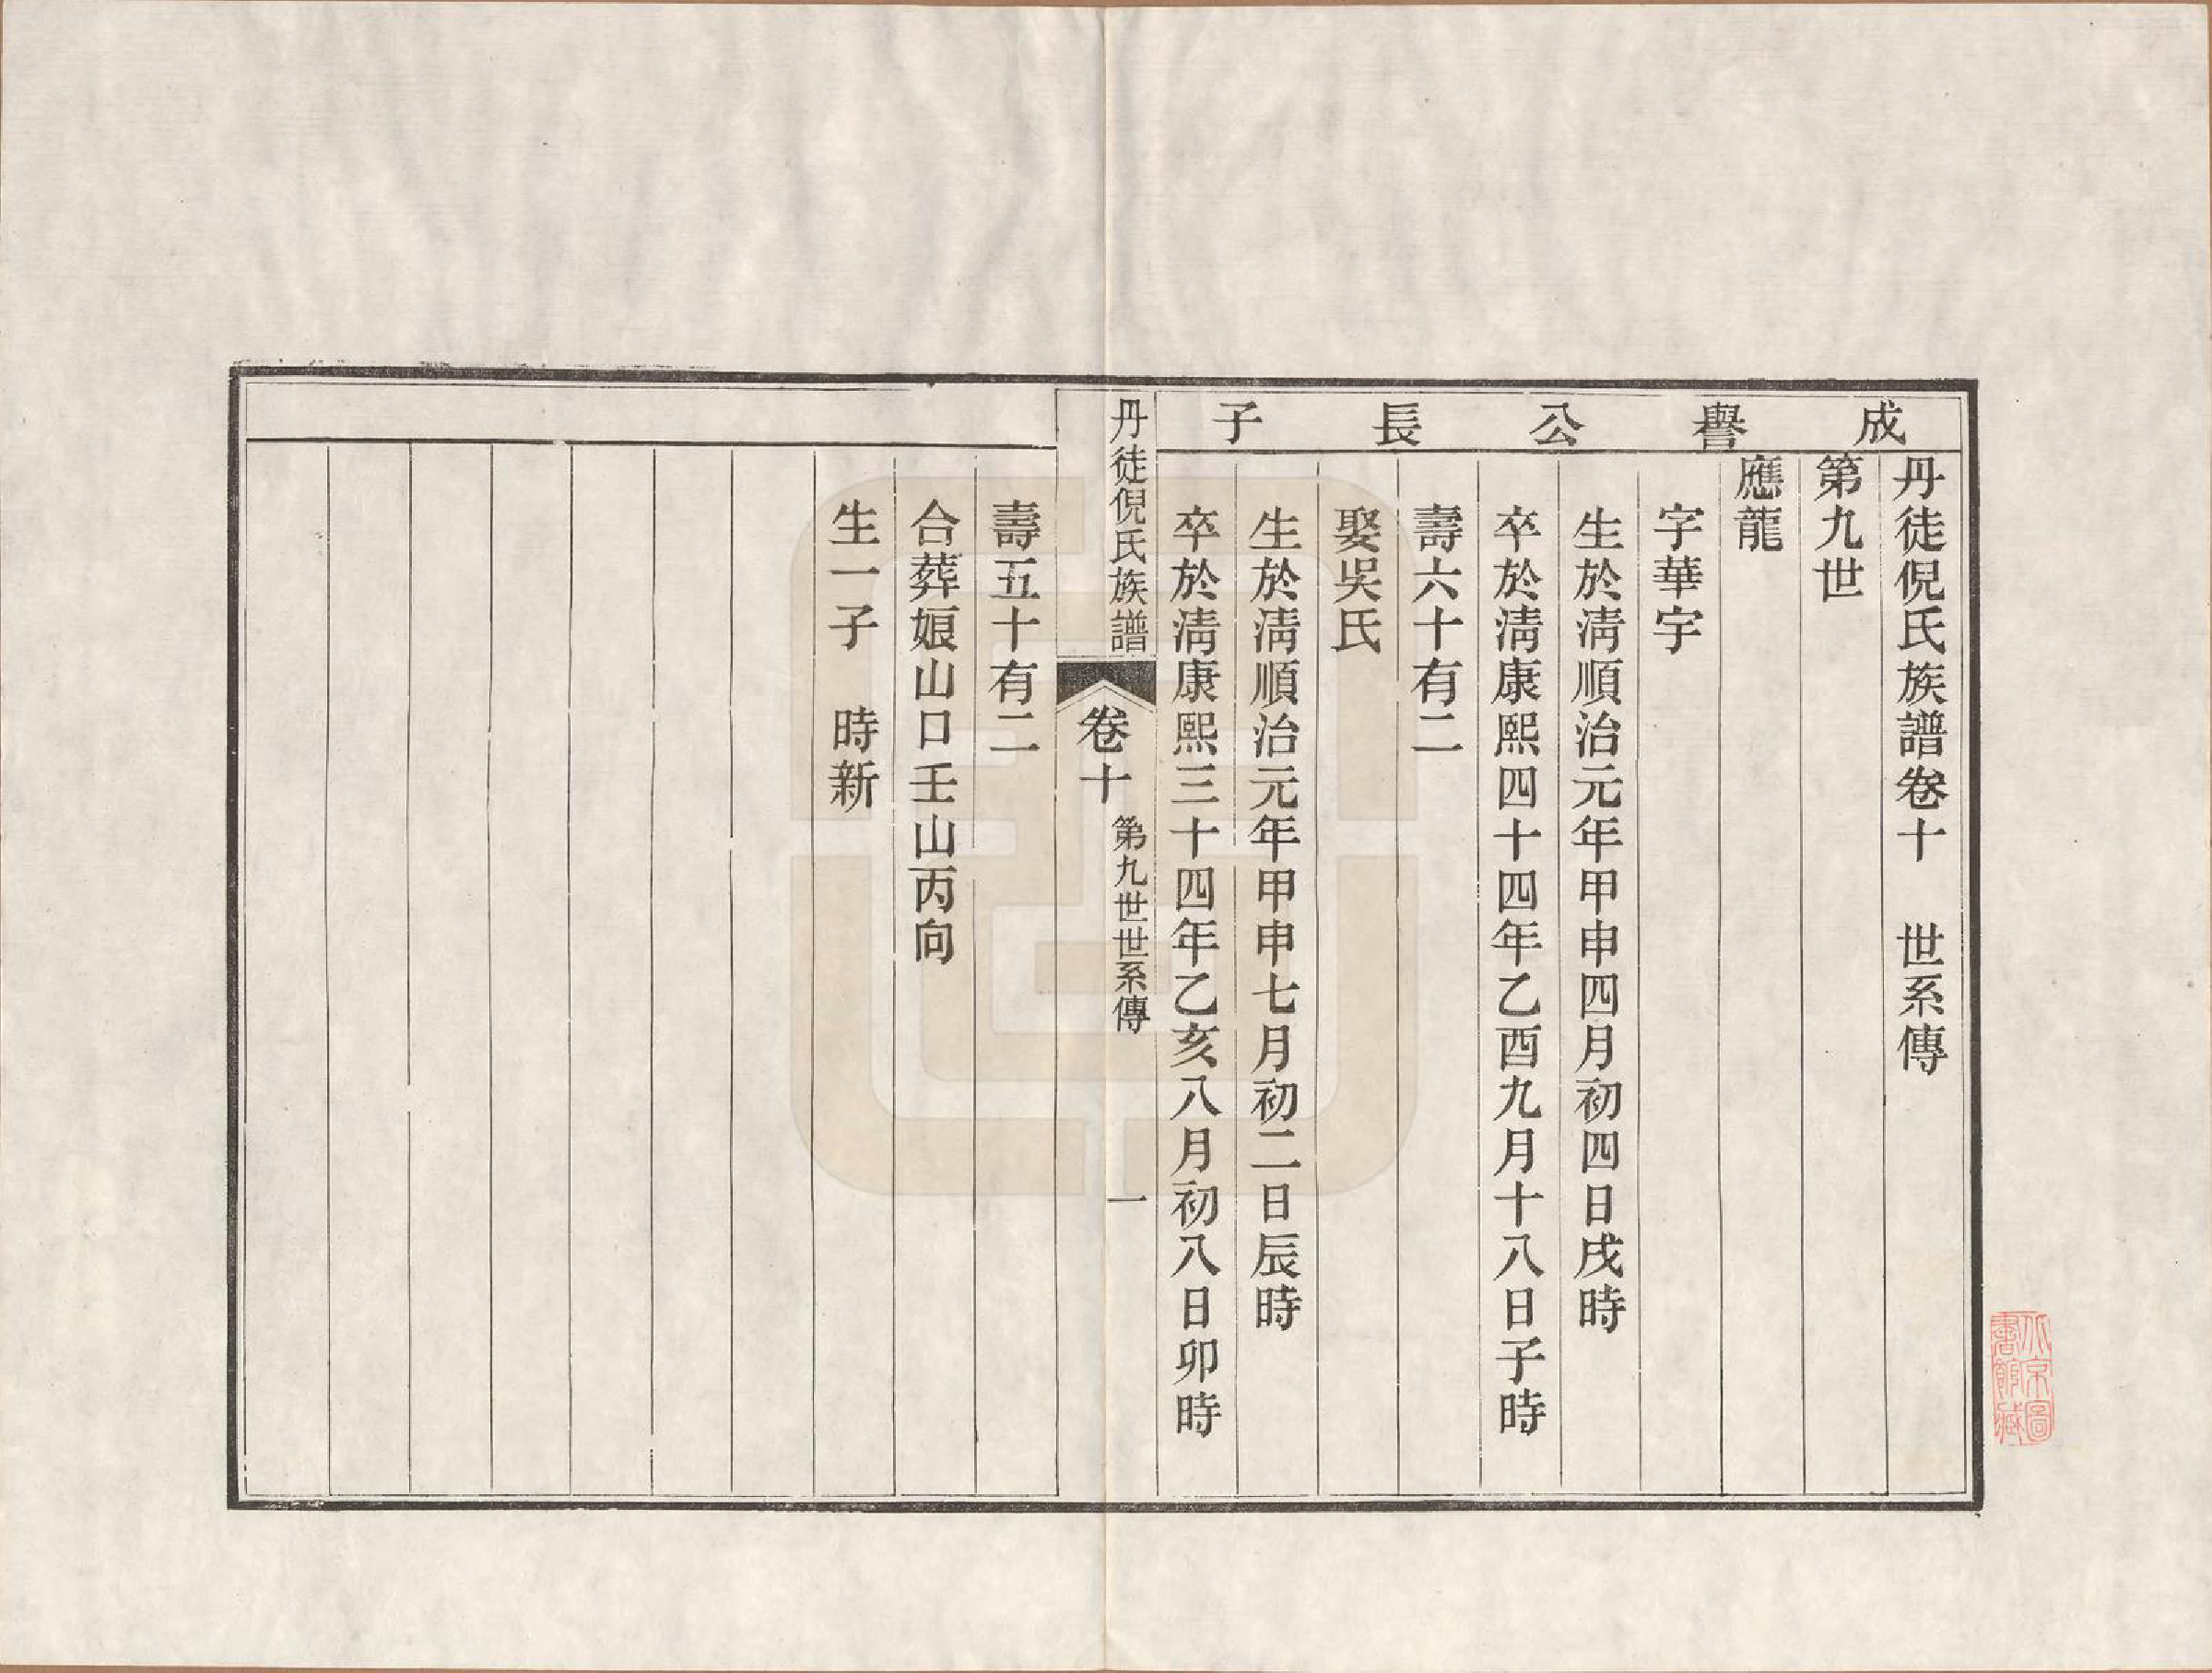 成譽公長子
丹徒倪氏族譜卷十　世系傳
第九世
應龍
字華宇
生於淸順治元年甲申四月初四日戌時
卒於淸康熙四十四年乙酉九月十八日子時
壽六十有二
娶吳氏
生於淸順治元年甲申七月初二日辰時
卒於淸康熙三十四年乙亥八月初八日卯時
丹徒倪氏族譜
卷十
第九世世系傳
一
壽五十有二
合葬娘山口壬山丙向
生一子　時新
北京圖
書館藏